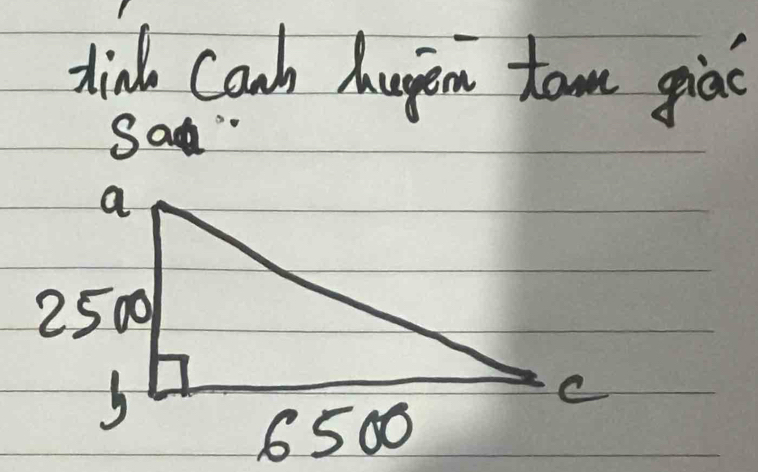 tính Canh huyền tam giác
Sau:
a
2500
b
c
6500